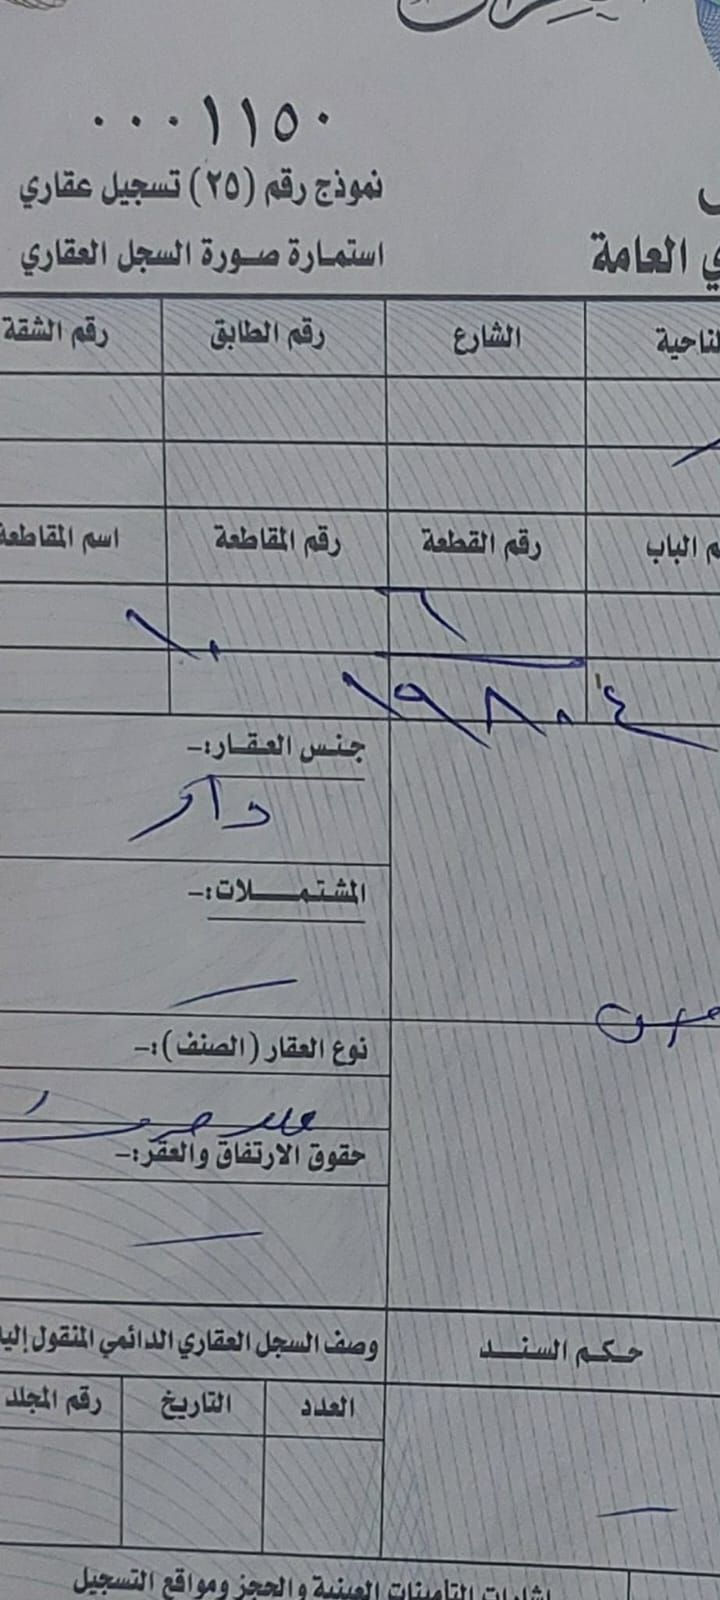 ٠٠٠١١٥٠
نموذج رقم (٢٥) تسجيل عقاري
ي العامة استمارة صورة السجل العقاري
لناحية الشارع رقم الطابق رقم الشقة
م الباب رقم القطعة رقم المقاطعة اسم المقاطعة
٦ ١٠
١٩٨٠٤
جنس العقار:-
دار
المشتملات:-
نوع العقار (الصنف):-
ملك صرف
حقوق الارتفاق والعقر:-
حكم السند وصف السجل العقاري الدائمي المنقول إليه
العدد التاريخ رقم المجلد
إشارات التأمينات العينية والحجز ومواقع التسجيل